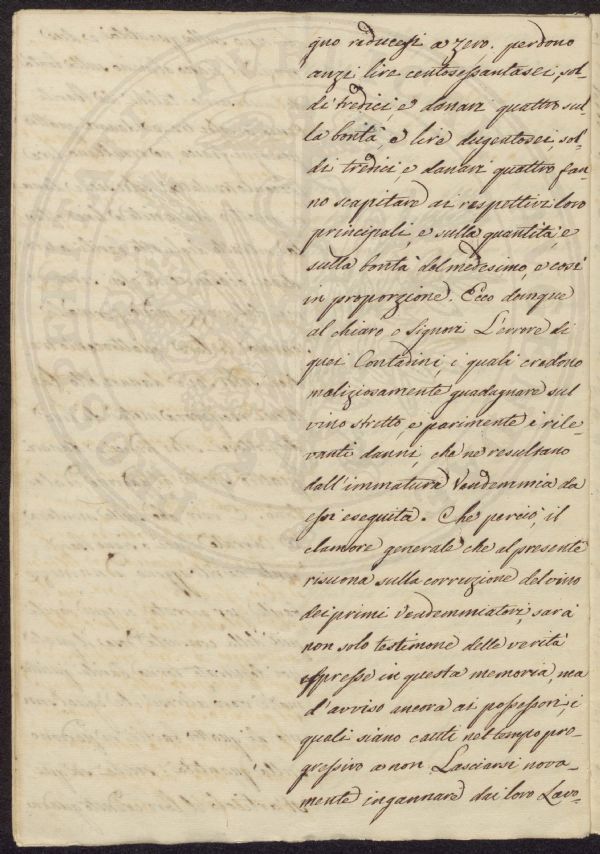 gno reducesi a zero. perdono
anzi lire centosessantasei, sol-
di tredici, e danari quattro sul-
la bontà, e lire dugentosei, sol-
di tredici e danari quattro fan-
no scapitare ai respettivi loro
principali, e sulla quantità, e
sulla bontà del medesimo, e così
in proporzione. Ecco dunque
al chiaro o Signori L'errore di
quei Contadini, i quali credono
maliziosamente guadagnare sul
vino stretto, e parimente i rile-
vanti danni, che ne resultano
dall'immatura Vendemmia da
essi eseguita. Che perciò, il
clamore generale che al presente
risuona sulla corruzione del vino
dei primi Vendemmiatori, sarà
non solo testimone delle verità
espresse in questa memoria, ma
d'avviso ancora ai possessori, i
quali siano cauti nel tempo pro-
gressivo a non Lasciarsi nova-
mente ingannare dai loro Lavo-